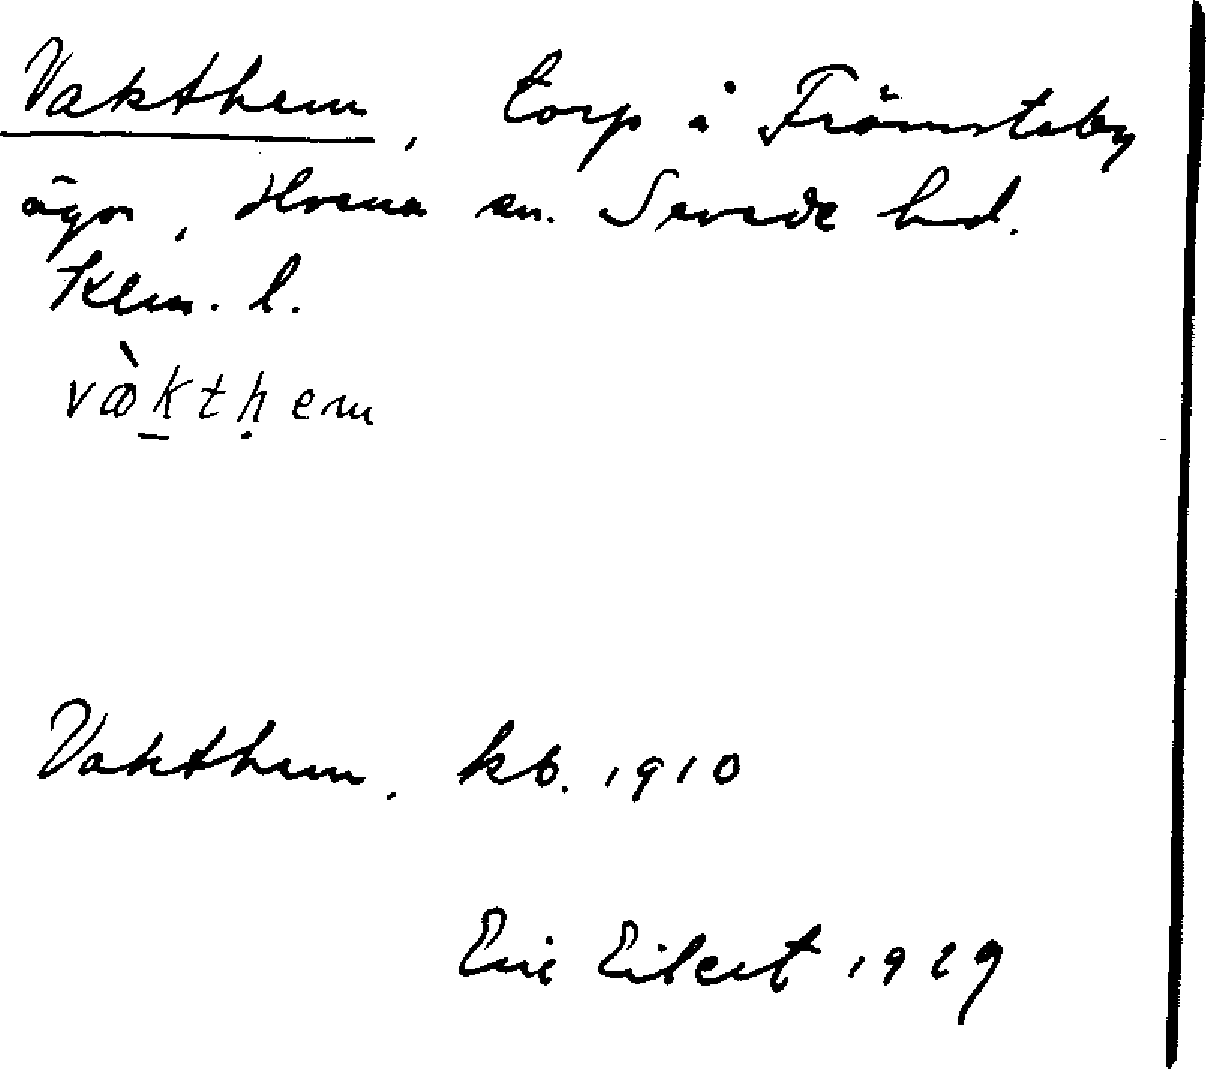 Vakthem, torp å Främsteby
ägor, Hvena sn. Sevede hd.
Klm. l.
vàkthem
Vakthem. kb. 1910
Eric Eilert 1929